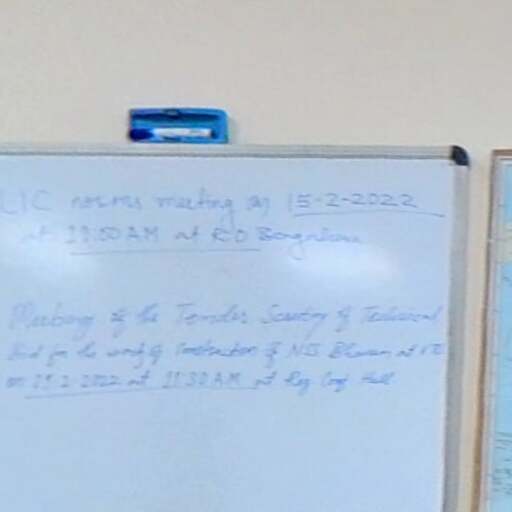 LIC norms meeting on 15-2-2022
at 11:00 AM at RO
Meeting of the Tender Scrutiny of Technical
Bid for the work of Construction of NSS Bhavan at
on 2022 at 11:30 AM at Reg Conf Hall